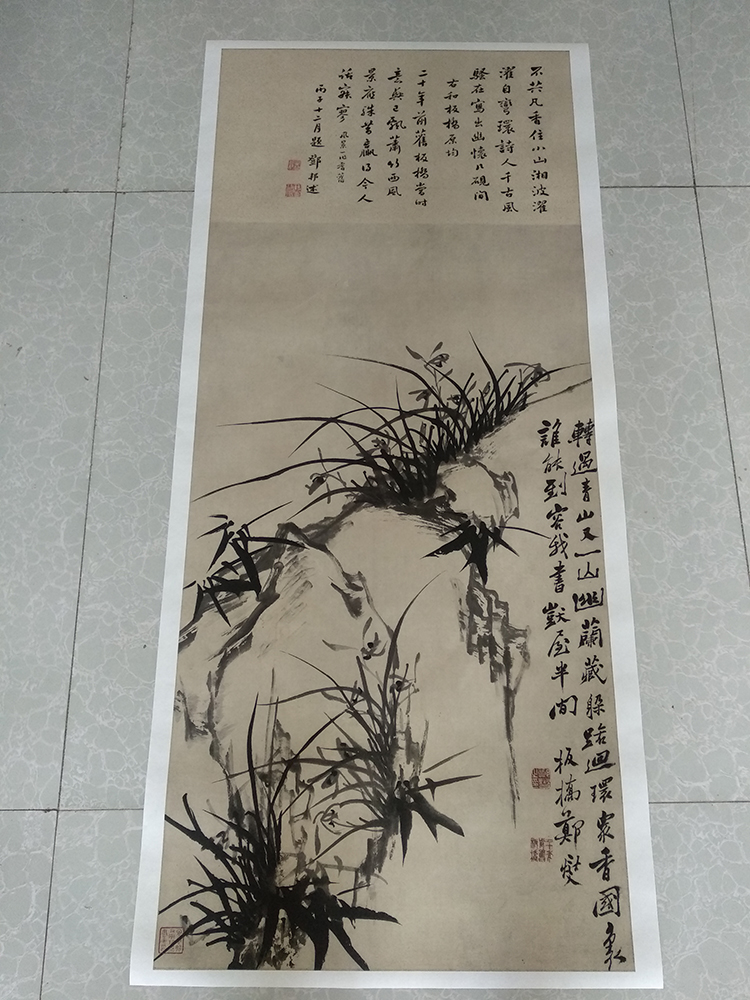 不共凡香住小山湘波濯
濯自彎環詩人千古風
騷在寫出幽懷几硯間
右和板橋原均
二十年前舊板橋當時
意興已飄蕭竹西風
景應殊昔贏得今人
話寂寥
丙子十二月題 鄧邦述
轉過青山又一山幽蘭藏躲路迴環眾香國裏
誰能到容我書獃屋半間 板橋鄭燮